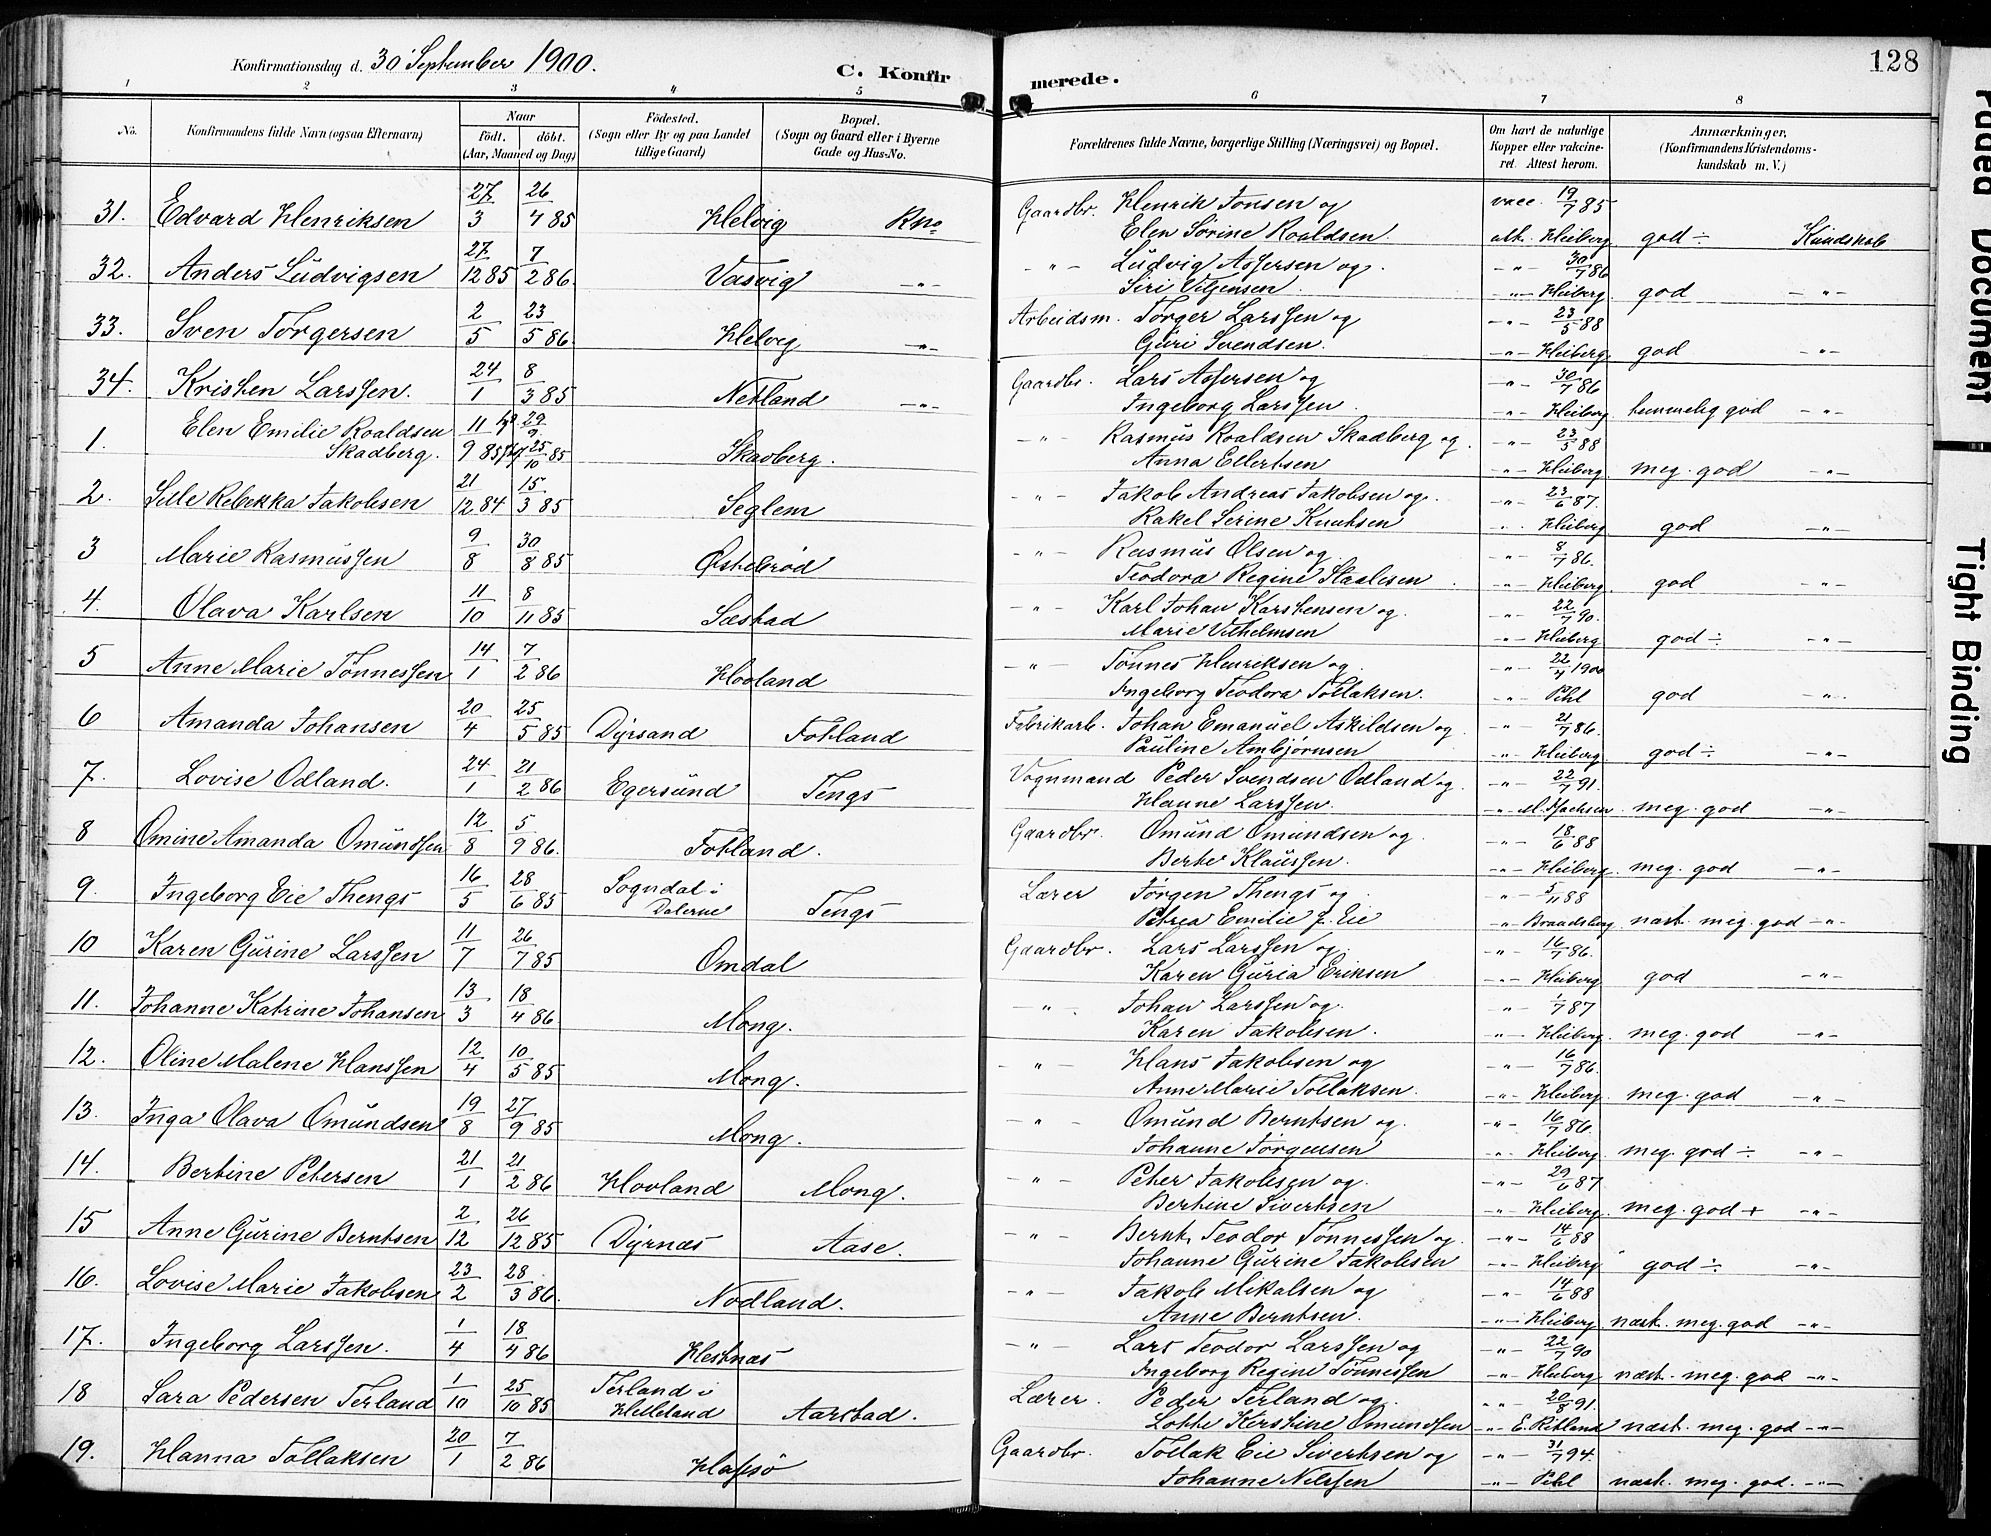 Konfirmationsdag d. 30 September 1900.
C. Konfirmerede.
128
Faded Document
Tight Binding
1 2 3 4 5 6 7 8
No.
Konfirmandens fulde Navn (ogsaa Efternavn)
Naar
født. døbt.
(Aar, Maaned og Dag)
Fødested.
(Sogn eller By og paa Landet
tillige Gaard)
Bopæl.
(Sogn og Gaard eller i Byerne
Gade og Hus-No.
Forældrenes fulde Navne, borgerlige Stilling (Næringsvei) og Bopæl.
Om havt de naturlige
Kopper eller vakcine-
ret. Attest herom.
Anmærkninger,
(Konfirmandens Kristendoms-
kundskab m. V.)
31. Edvard Henriksen 27/3 26/4 85 Helvig Gaardbr. Henrik Jonsen og vacc. 19/7 85
Elen Sørine Roaldsen. att. Heiberg god ÷ Kundskab
32. Anders Ludvigsen 27/12 85 7/2 86 Vasvig -"- -"- Ludvig Assersen og -"- 30/7 86
Siri -"- Heiberg god -"-
33. Sven Torgersen 2/5 23/5 86 Helvig -"- Arbeidsm. Torger Larssen og -"- 23/5 88
Guri Svendsen. -"- Heiberg god -"-
34. Kristen Larssen. 24/1 8/3 85 Netland -"- Gaardbr. Lars Assersen og -"- 30/7 86
Ingeborg Larssen -"- Heiberg temmelig god -"-
1. Elen Emilie Roaldsen 11/9 85 29/9 -"- Rasmus Roaldsen Skadberg og -"- 23/5 88
Skadberg. 25/10 85 Skadberg. Anna Ellertsen -"- Heiberg meg. god -"-
2. Sille Rebekka Jakobsen 21/12 84 15/3 85 Seglem -"- Jakob Andreas Jakobsen og -"- 23/6 87.
Rakel Serine Knutsen -"- Heiberg god -"-
3 Marie Rasmussen 9/8 30/8 85 Østebrød -"- Rasmus Olsen og -"- 8/7 86.
Teodora Regine Staalesen -"- Heiberg. god -"-
4. Olava Karlsen 11/10 8/11 85 Sæstad -"- Karl Johan Karstensen og -"- 22/7 90.
Marie Vilhelmsen -"- Heiberg god ÷ -"-
5 Anne Marie Tønnessen 14/1 7/2 86 Hovland -"- Tønnes Henriksen og -"- 22/4 1900
Ingeborg Teodora Tollaksen. -"- Pihl god -"-
6 Amanda Johansen 20/4 25/5 85 Dyrsand Fotland Fabrikarb. Johan Emanuel Askildsen og -"- 21/7 86.
Pauline Ambjørnsen -"- Heiberg. god ÷ -"-
7. Lovise Odland. 24/1 21/2 86 Egersund Tengs Vognmand Peder Svendsen Odland og -"- 22/7 91.
Hanne Larssen. -"- M. Isachsen meg. god -"-
8 Omine Amanda Omundsen 12/8 5/9 86. Fotland. Gaardbr. Omund Omundsen og -"- 18/6 88
Berte Klaussen. -"- Heiberg. meg. god -"-
9. Ingeborg Eie Thengs 16/5 28/6 85 Sogndal i Lærer Jørgen Thengs og -"- 5/11 88
Dalerne Tengs Petrea Emilie J. Eie -"- Brandsberg næst. meg. god -"-
10 Karen Gurine Larssen 11/7 26/7 85 Omdal Gaardbr. Lars Larssen og -"- 16/7 86.
Karen Guria Eriksen -"- Heiberg god -"-
11. Johanne Katrine Johansen 13/3 18/4 86 Mong. -"- Johan Larssen og -"- 1/7 87
Karen Jakobsen. -"- Heiberg meg. god -"-
12. Oline Malene Hanssen 12/4 10/5 85 Mong. -"- Hans Jakobsen og -"- 16/7 86.
Anne Marie Tollaksen. -"- Heiberg. meg. god -"-
13. Inga Olava Omundsen 19/8 27/9 85 Mong. -"- Omund Berntsen og -"- 16/7 86.
Johanne Jørgensen -"- Heiberg. meg. god ÷ -"-
14. Bertine Petersen 21/1 21/2 86 Hovland Mong. -"- Peter Jakobsen og -"- 29/6 87
Bertine Sivertsen -"- Heiberg. meg. god + -"-
15 Anne Gurine Berntsen 2/12 26/12 85 Dyrnæs Aase. -"- Bernt Teodor Tønnessen og -"- 14/6 88
Johanne Gurine Jakobsen -"- Heiberg god ÷ -"-
16. Lovise Marie Jakobsen 23/2 28/3 86. Nodland. -"- Jakob Mikalsen og -"- 14/6 88
Anne Berntsen. -"- Heiberg. næst. meg. god -"-
17. Ingeborg Larssen. 1/4 18/4 86 Hestnæs -"- Lars Teodor Larssen og -"- 22/7 90
Ingeborg Regine Tønnessen -"- Heiberg næst. meg. god -"-
18 Sara Pedersen Terland 1/10 25/10 85 Terland i Lærer. Peder Terland og -"- 20/8 91.
Helleland Aarstad. Lotte Kerstine Omundsen -"- E. Ritland næst. meg. god -"-
19. Hanna Tollaksen 20/1 7/2 86 Hafsø Gaardbr. Tollak Eie Sivertsen og -"- 31/7 94.
Johanne Nilssen -"- Pihl næst. meg. god. -"-